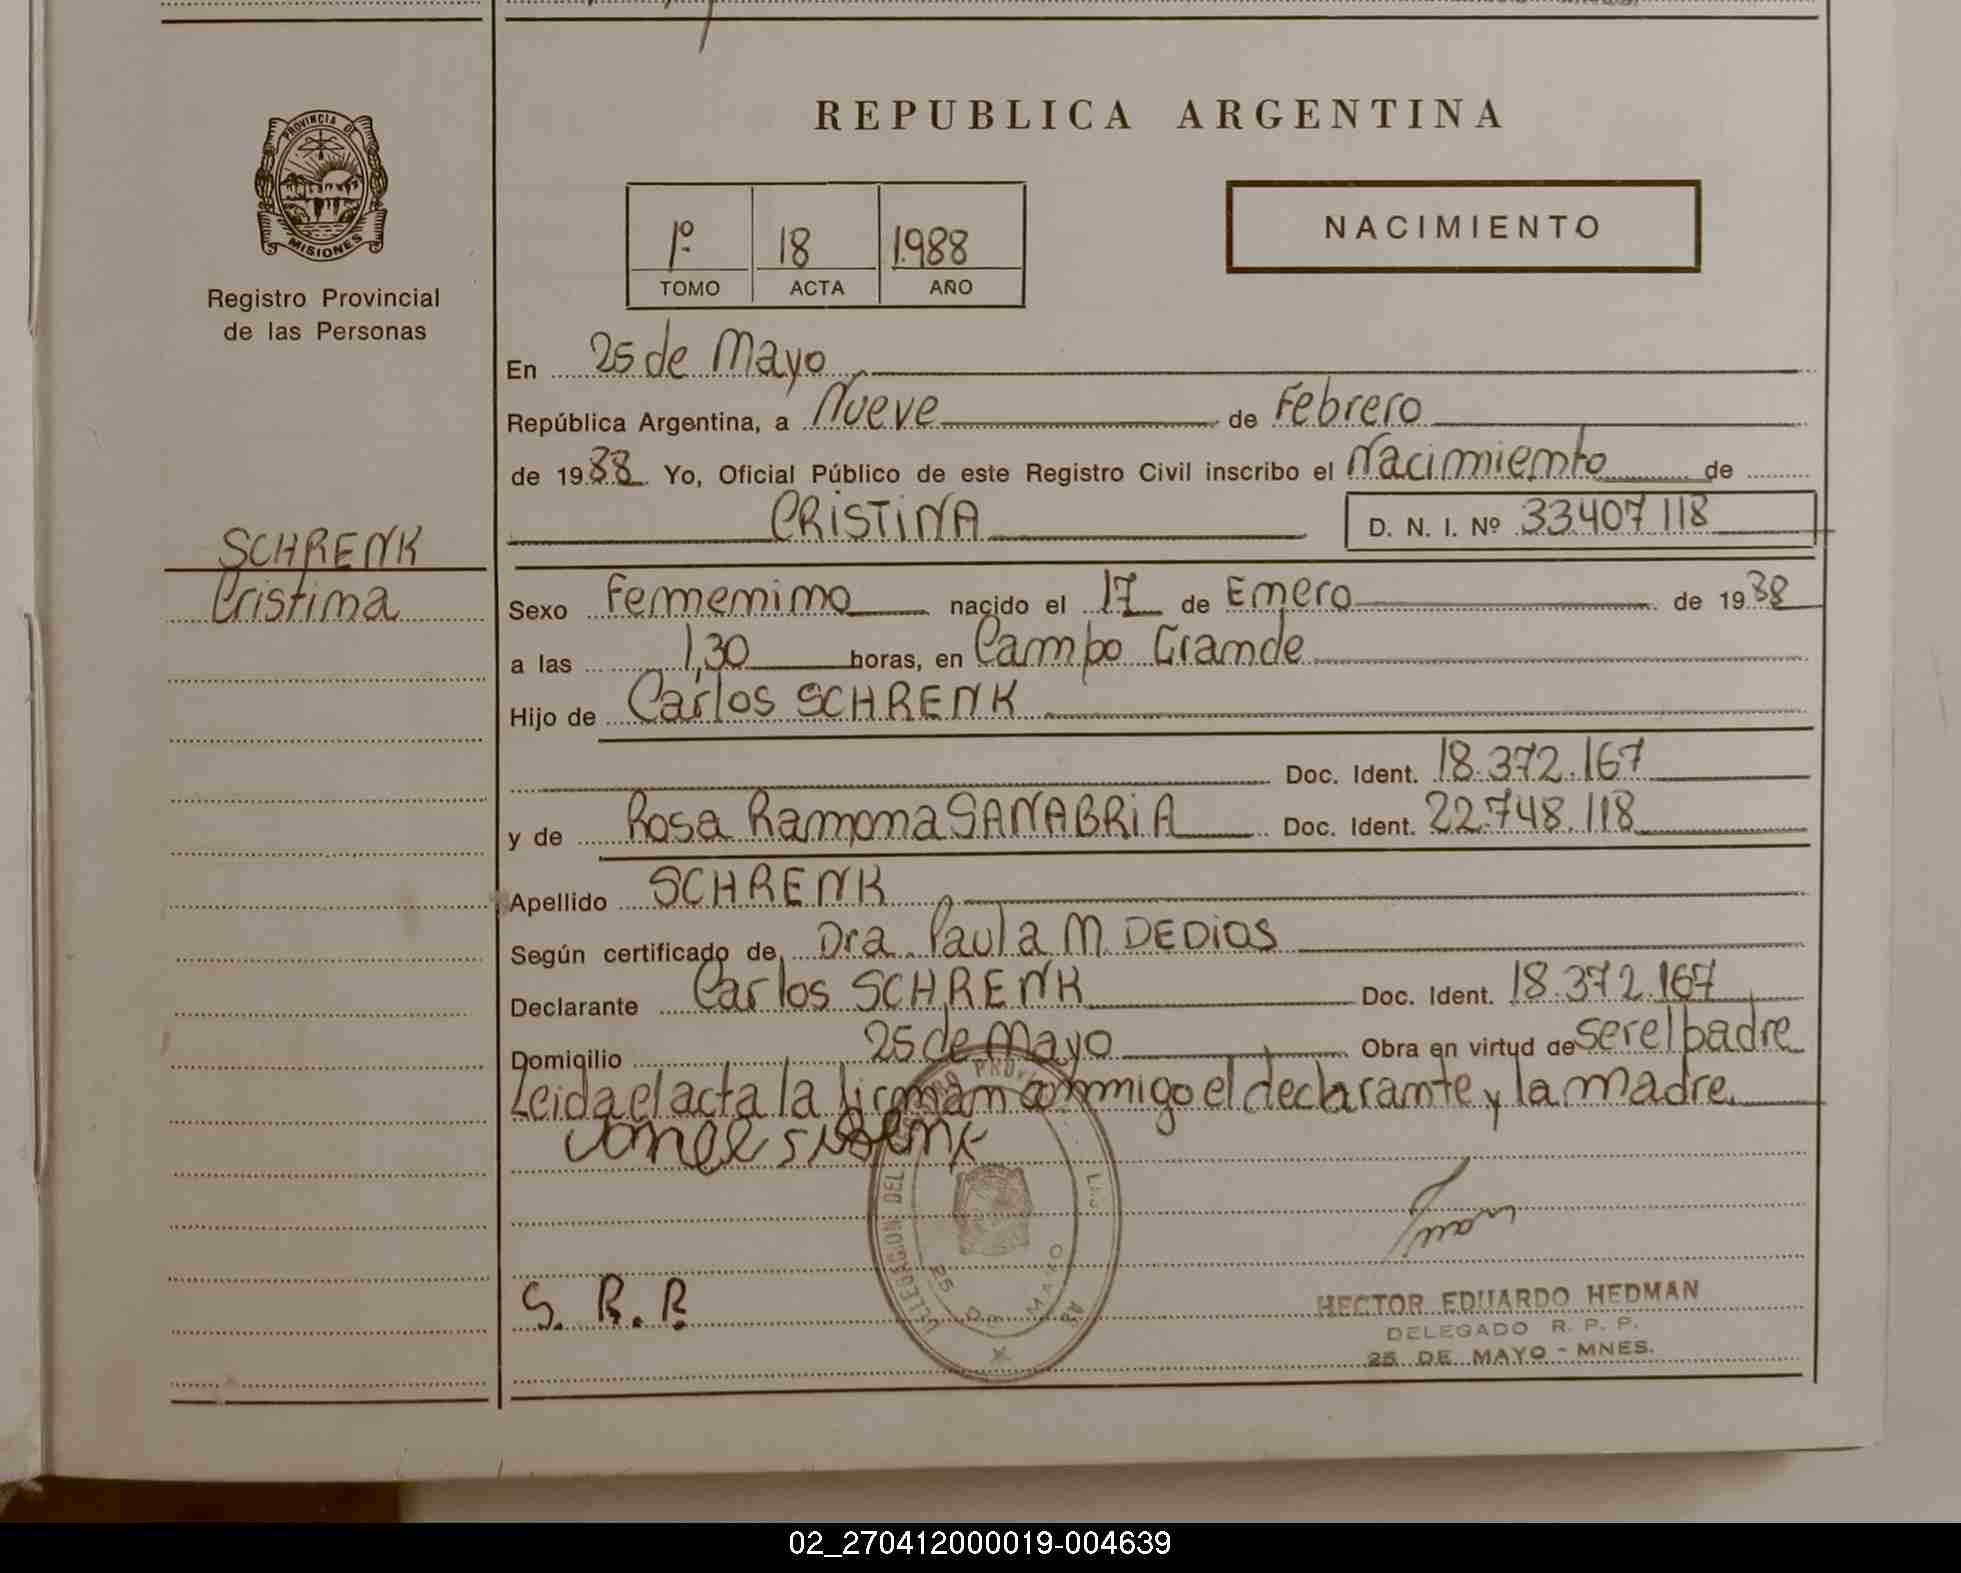 REPUBLICA ARGENTINA
PROVINCIA DE
MISIONES
Registro Provincial
de las Personas
1º 18 1.988
TOMO ACTA AÑO
NACIMIENTO
En 25 de Mayo
República Argentina, a Nueve de Febrero
de 1988 Yo, Oficial Público de este Registro Civil inscribo el Nacimiento de
CRISTINA D. N. I. Nº 33.407.118
SCHRENK
Cristina
Sexo Femenino nacido el 17 de Enero de 1988
a las 1,30 horas, en Campo Grande
Hijo de Carlos SCHRENK
Doc. Ident. 18.372.167
y de Rosa Ramona SANABRIA Doc. Ident. 22.748.118
Apellido SCHRENK
Según certificado de Dra. Paula M. DEDIOS
Declarante Carlos SCHRENK Doc. Ident. 18.372.167
Domicilio 25 de Mayo Obra en virtud de ser el padre
Leida el acta la firman conmigo el declarante y la madre.
S. R. R.
25 DE MAYO
HECTOR EDUARDO HEDMAN
DELEGADO R. P. P.
25 DE MAYO - MNES.
02_270412000019-004639